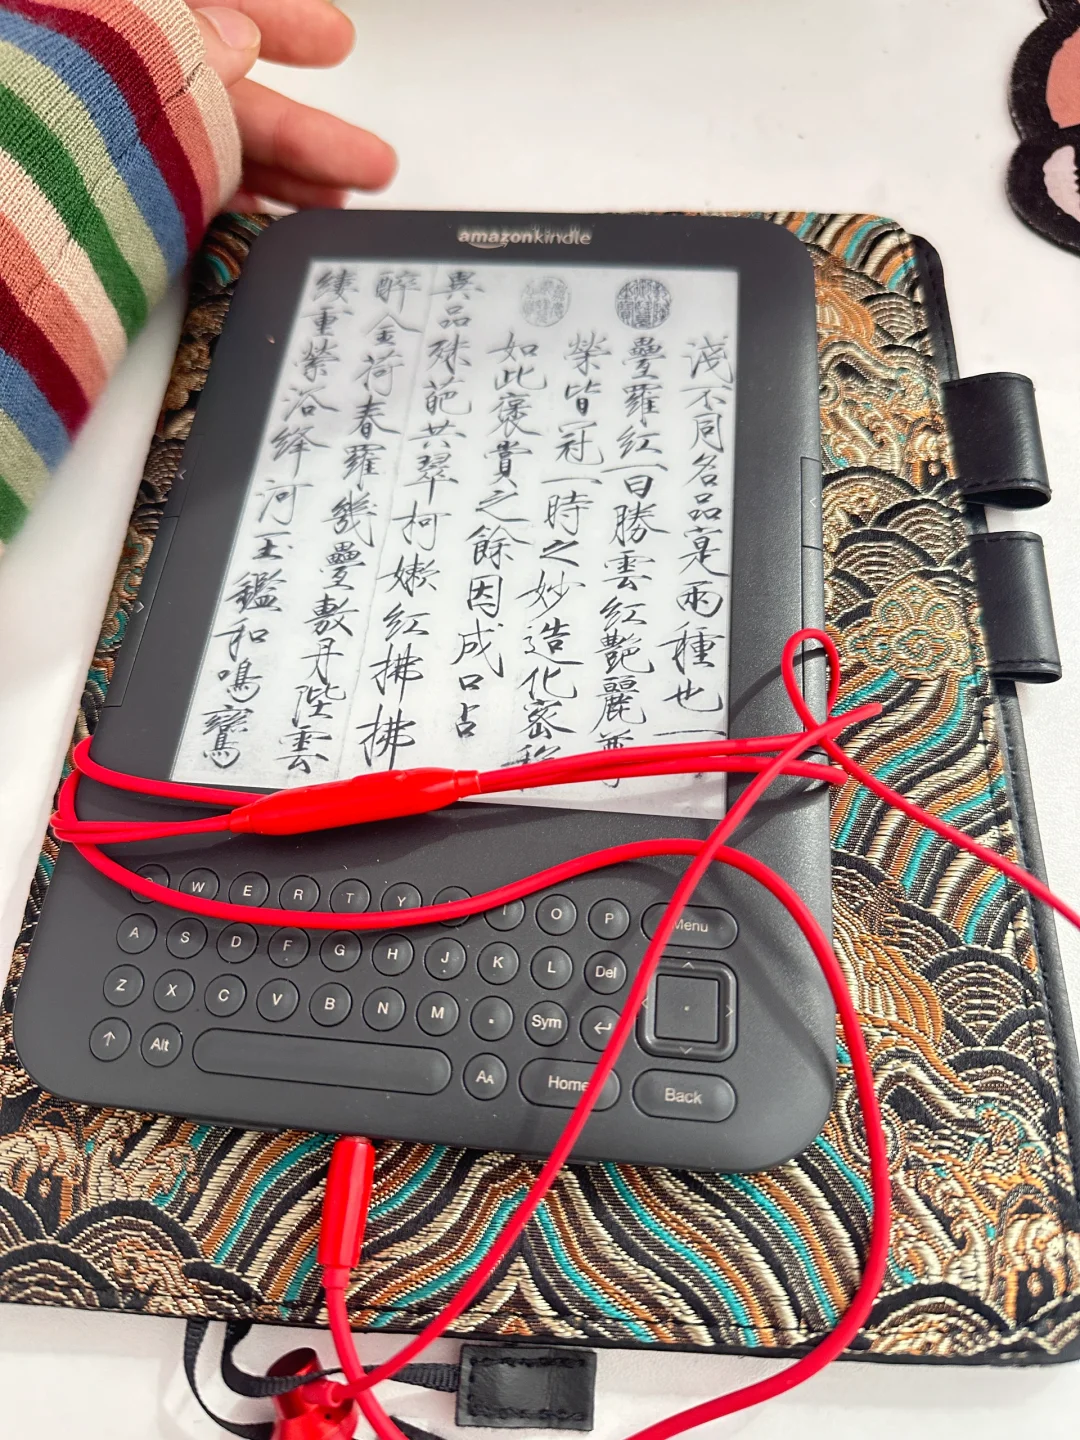 amazonkindle
淺不同名品寔兩種也一
疊羅紅一曰勝雲紅艷麗尊
榮皆冠一時之妙造化密移
如此褒賞之餘因成口占
異品殊葩共翠柯嫩紅拂拂
醉金荷春羅幾疊敷丹陛雲
縷重縈浴絳河玉鑑和鳴鸞
W E R T Y I O P Menu
A S D F G H J K L Del
Z X C V B N M . Sym
Alt AA Home Back